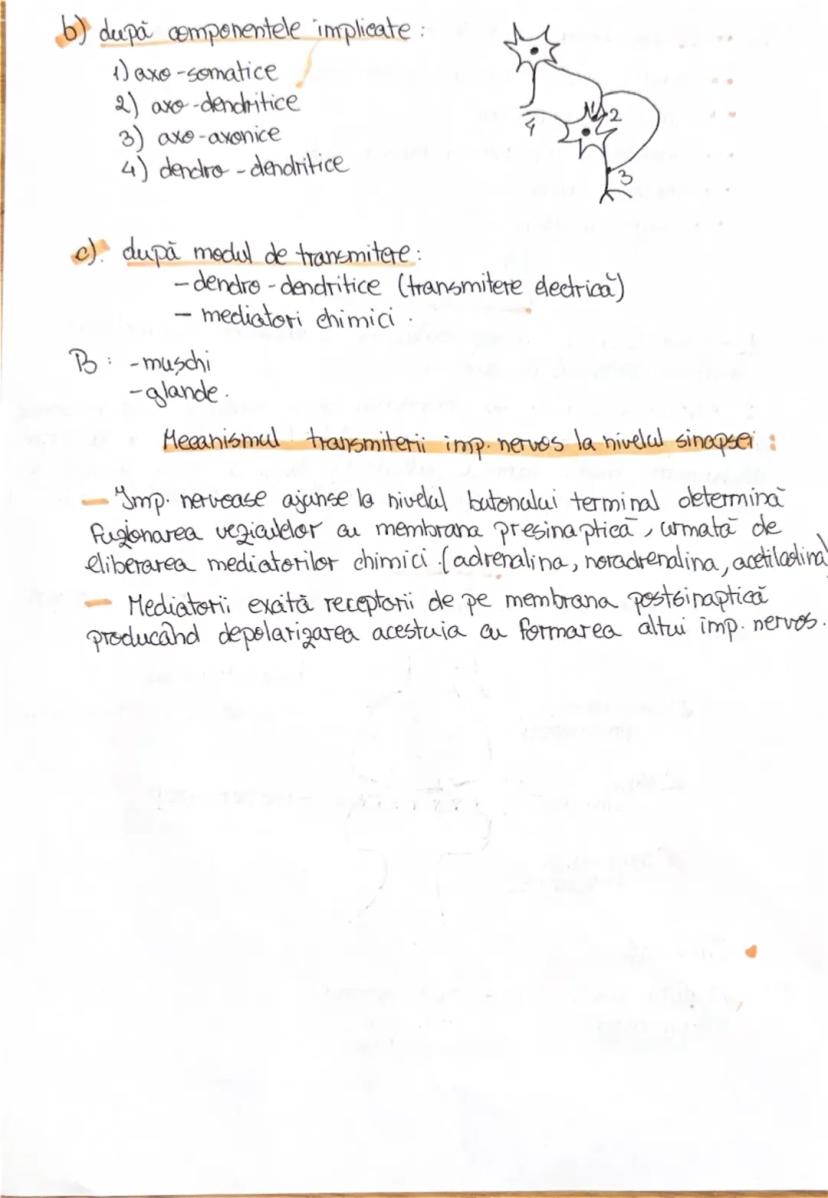 b) după componentele implicate :
1) axo-somatice
2) axo-dendritice
3) axo-axonice
4) dendro-dendritice
1 2
4
3
c). după modul de transmitere :
- dendro-dendritice (transmitere electrică)
- mediatori chimici .
B : - muschi
- glande .
Mecanismul transmiterii imp. nervos la nivelul sinapsei :
- Imp. nervoase ajunse la nivelul butonului terminal determină
fuzionarea veziculelor cu membrana presinaptică , urmată de
eliberarea mediatorilor chimici . (adrenalina, noradrenalina, acetilcolina)
- Mediatorii exaită receptorii de pe membrana postsinaptică
producând depolarizarea acestuia cu formarea altui imp. nervos .